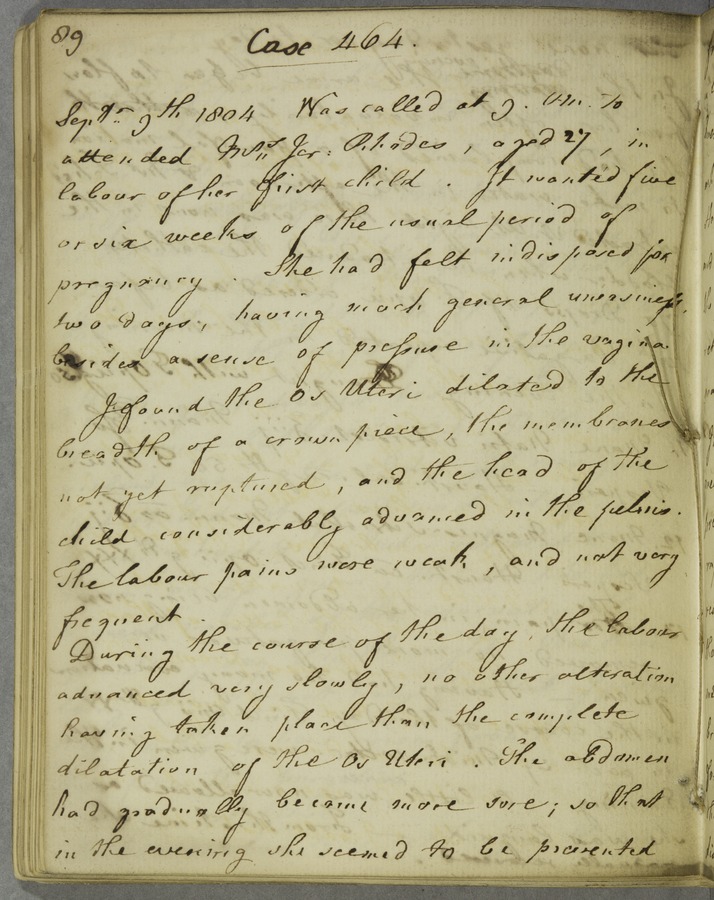 89
Case 464.
Septr. 9th 1804 Was called at 9. Am. to
attended Mrs. Jer: Rhodes, aged 27, in
labour of her first child. It wanted five
or six weeks of the usual period of
pregnancy. She had felt indisposed for
two days, having much general uneasiness,
besides a sense of pressure in the vagina.
I found the Os Uteri dilated to the
breadth of a crown piece, the membranes
not yet ruptured, and the head of the
child considerably advanced in the pelvis.
The labour pains were weak, and not very
frequent.
During the course of the day, the labour
advanced very slowly, no other alteration
having taken place than the complete
dilatation of the Os Uteri. The abdomen
had gradually become more sore; so that
in the evening she seemed to be prevented